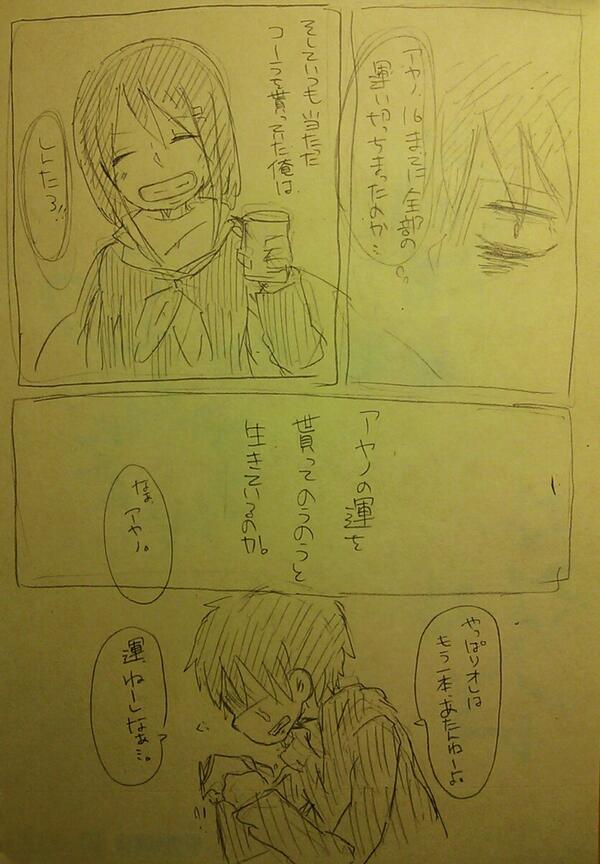 アヤノ、16までに全部の
運い切っちまったのか…
そしていつも当たった
コーラを貰っていた俺は
しんたろ!!
アヤノの運を
貰ってのうのうと
生きているのか。
なぁ、アヤノ。
やっぱりオレは
もう一本、あたんねーよ。
運、ねーしなぁ…。